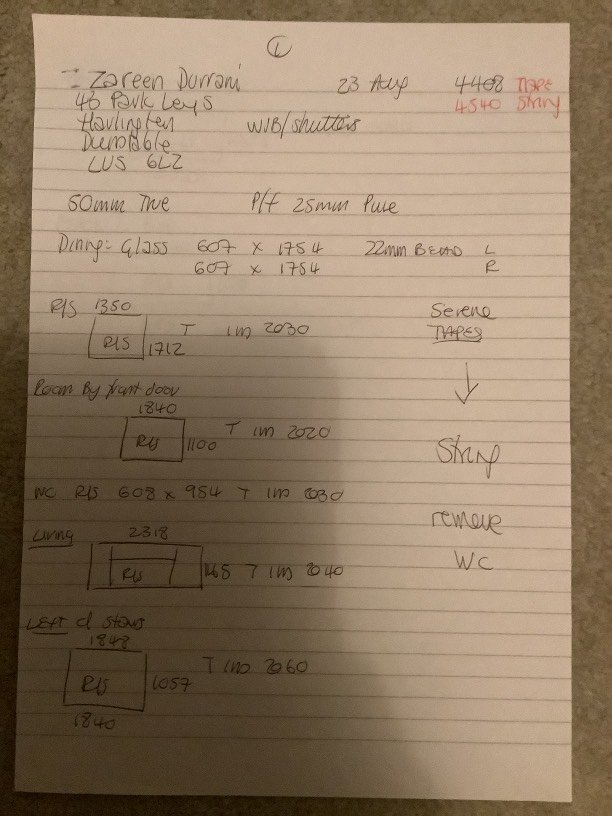 1
Zareen Durrani 23 Aug 4408 TAPE
43 Park Leys 4540 String
Harlington WVB/shutters
Dunstable
LU5 6LZ
50mm True P/f 25mm Pure
Dining: Glass 607 x 1754 22mm BEAD L
607 x 1754 R
R/S 1350 Serene
R/S 1712 T 1m 2030 TAPES
Room By front door
1840
R/S 1100 T 1m 2020 String
WC R/S 608 x 954 T 1m 2030
remove
Living 2318 WC
R/S 1165 T 1m 2040
Left of stairs
1848
R/S 1057 T 1m 2060
1840